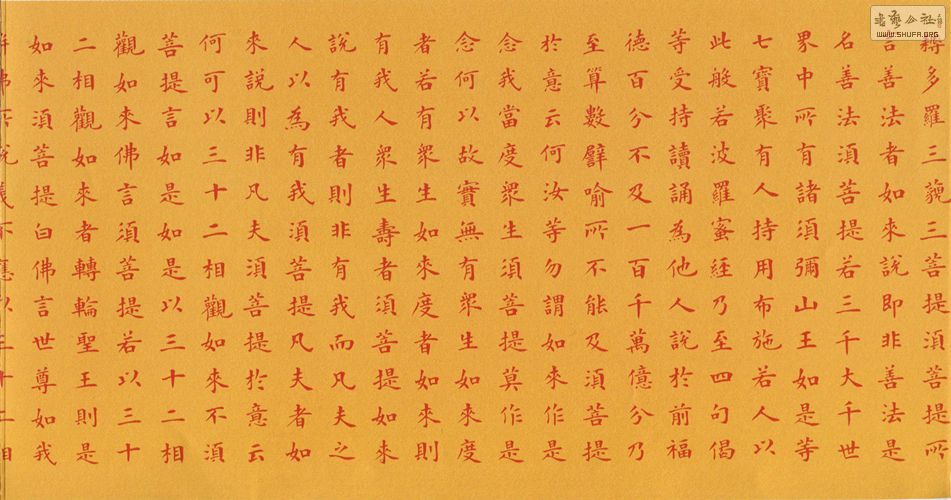 耨多羅三藐三菩提須菩提所
言善法者如來說即非善法是
名善法須菩提若三千大千世
界中所有諸須彌山王如是等
七寶聚有人持用布施若人以
此般若波羅蜜經乃至四句偈
等受持讀誦為他人說於前福
德百分不及一百千萬億分乃
至算數譬喻所不能及須菩提
於意云何汝等勿謂如來作是
念我當度衆生須菩提莫作是
念何以故實無有衆生如來度
者若有衆生如來度者如來則
有我人衆生壽者須菩提如來
說有我者則非有我而凡夫之
人以為有我須菩提凡夫者如
來說則非凡夫須菩提於意云
何可以三十二相觀如來不須
菩提言如是如是以三十二相
觀如來佛言須菩提若以三十
二相觀如來者轉輪聖王則是
如來須菩提白佛言世尊如我
解佛所說義不應以三十二相
WWW.SHUFA.ORG